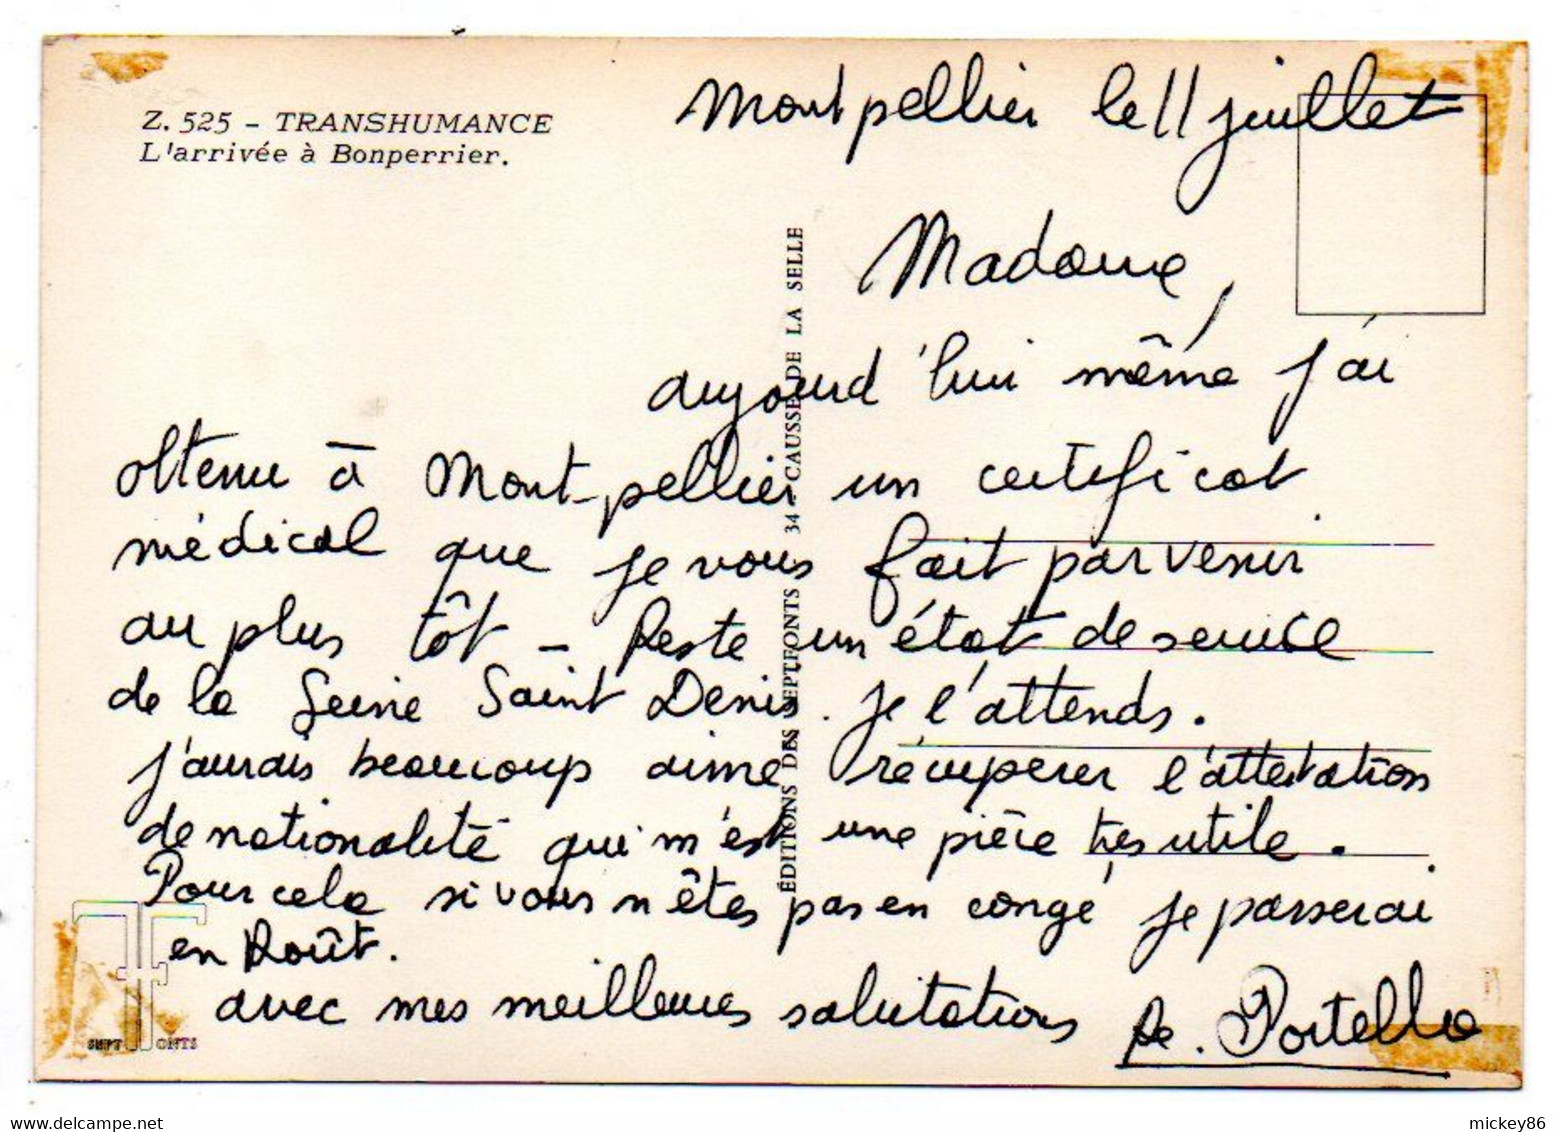 Z. 525 - TRANSHUMANCE
L'arrivée à Bonperrier.
Montpellier le 11 juillet
Madame,
aujourd'hui même j'ai
obtenu à Montpellier un certificat
médical que je vous fait parvenir
au plus tôt - Reste un état de service
de la Seine Saint Denis. je l'attends.
j'aurais beaucoup aimé récuperer l'attestation
de nationalité qui m'est une pièce très utile.
Pour cela si vous n'êtes pas en congé je passerai
en Août.
avec mes meilleures salutations
Portello
ÉDITIONS DES SEPTFONTS 34 - CAUSSE DE LA SELLE
SEPT FONTS
mickey86